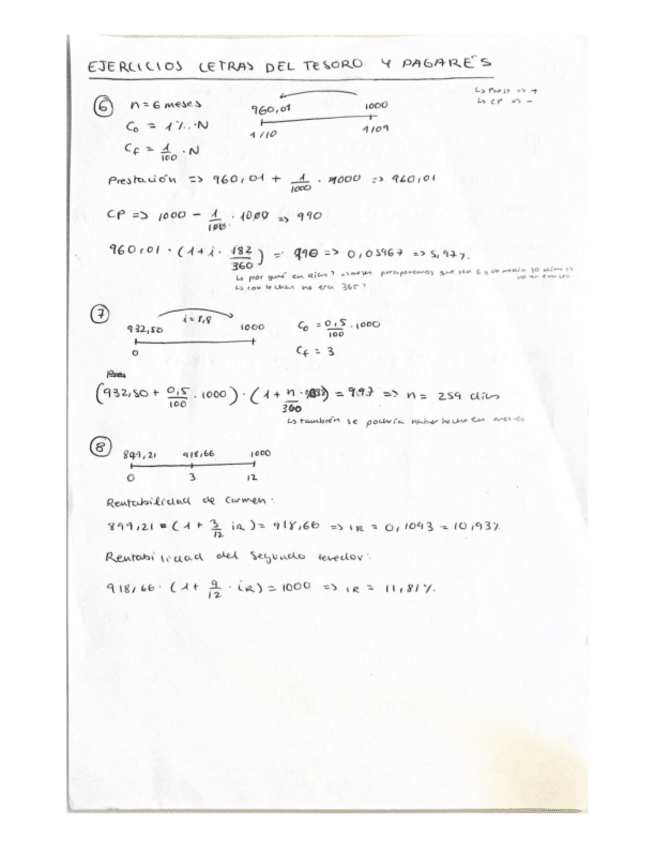 EJERCICIOS LETRAS DEL TESORO Y PAGARÉS
↳ Prest => +
↳ CP => -
⑥ n = 6 meses
960,01 1000
1/10 1/04
C₀ = 1‰ · N
C_f = 1/100 · N
Prestación => 960,01 + 1/1000 · 1000 => 960,01
CP => 1000 - 1/100 · 1000 => 990
960,01 · (1+i · 182/360) = 990 => 0,05967 => 5,97%
↳ por qué en días?
↳ con letras no era 365?
⑦
932,50 i = 8,8 1000
0
C₀ = 0,5/100 · 1000
C_f = 3
(932,50 + 0,5/100 · 1000) · (1 + n/360 · 0,088) = 997 => n = 259 días
↳ también se podría haber hecho en meses
⑧
899,21 918,66 1000
0 3 12
Rentabilidad de Carmen:
899,21 · (1 + 3/12 iR) = 918,66 => iR = 0,1093 = 10,93%
Rentabilidad del segundo tenedor:
918,66 · (1 + 9/12 · iR) = 1000 => iR = 11,81%